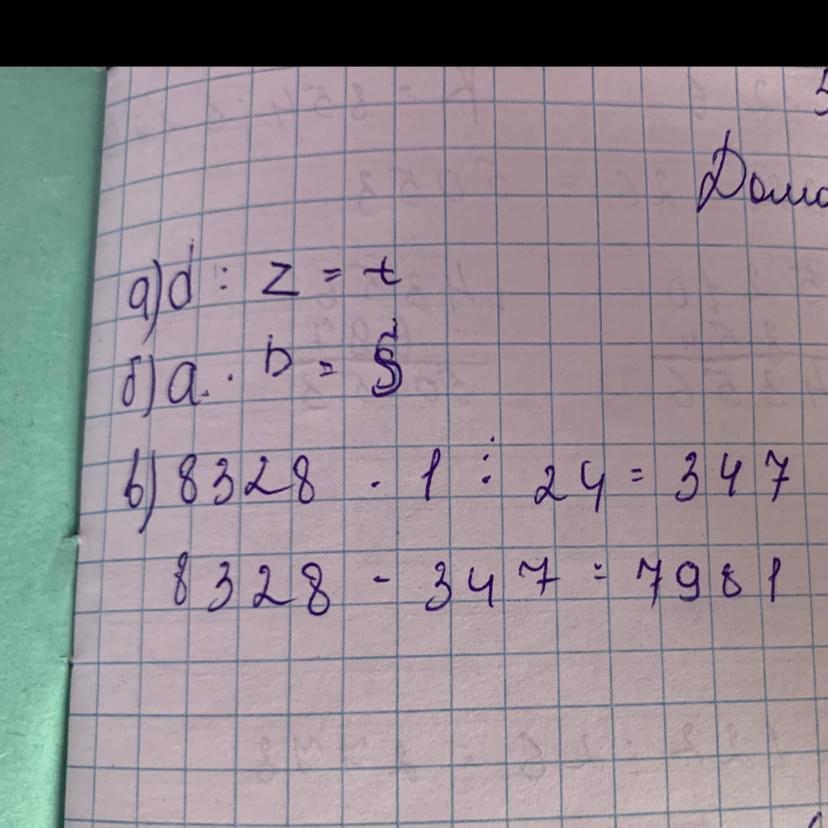 а) d : z = t
б) a · b = S
в) 8328 · 1 : 24 = 347
8328 - 347 = 7981